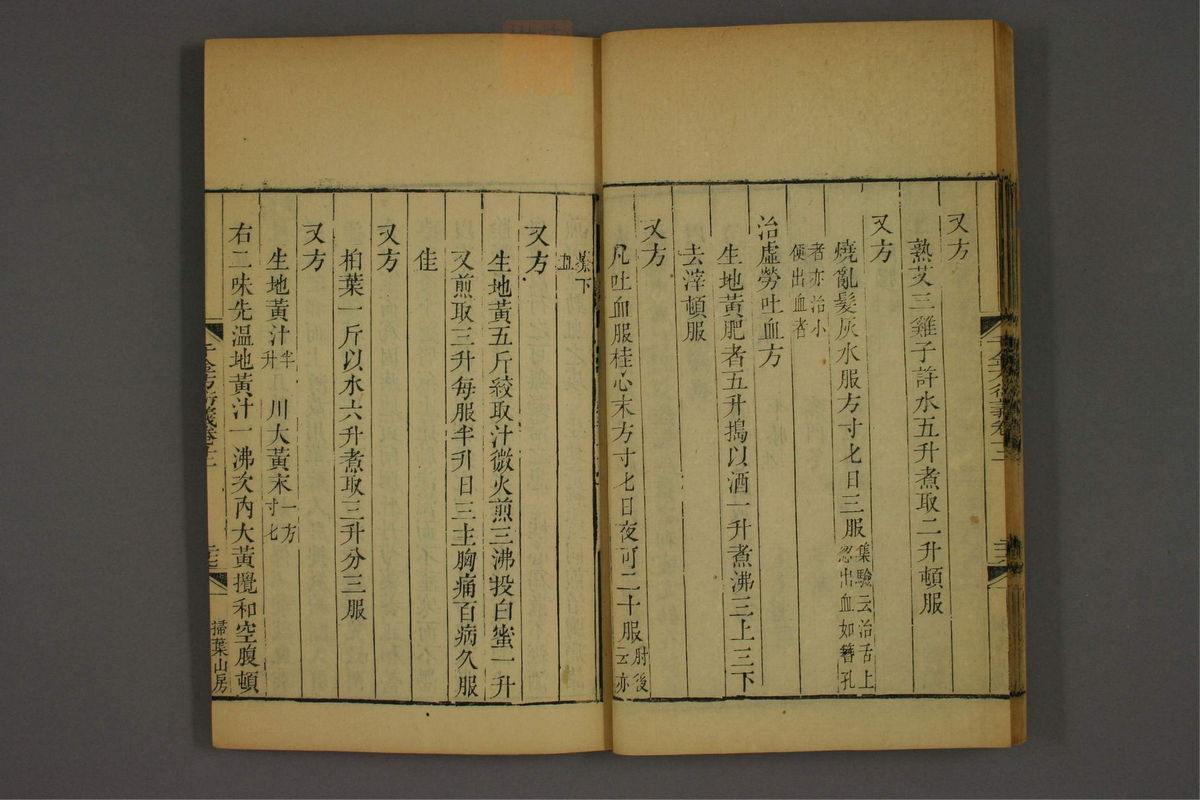 又方
熟艾三雞子許水五升煮取二升頓服
又方
燒亂髮灰水服方寸匕日三服集驗云治舌上忽出血如簪孔
者亦治小便出血者
治虛勞吐血方
生地黃肥者五升搗以酒一升煮沸三上三下
去滓頓服
又方
凡吐血服桂心末方寸匕日夜可二十服肘後云亦
暴下血
又方
生地黃五斤絞取汁微火煎三沸投白蜜一升
又煎取三升每服半升日三主胸痛百病久服
佳
又方
柏葉一斤以水六升煮取三升分三服
又方
生地黃汁半升川大黃末一方寸匕
右二味先溫地黃汁一沸次內大黃攪和空腹頓
千金方衍義卷十二
掃葉山房